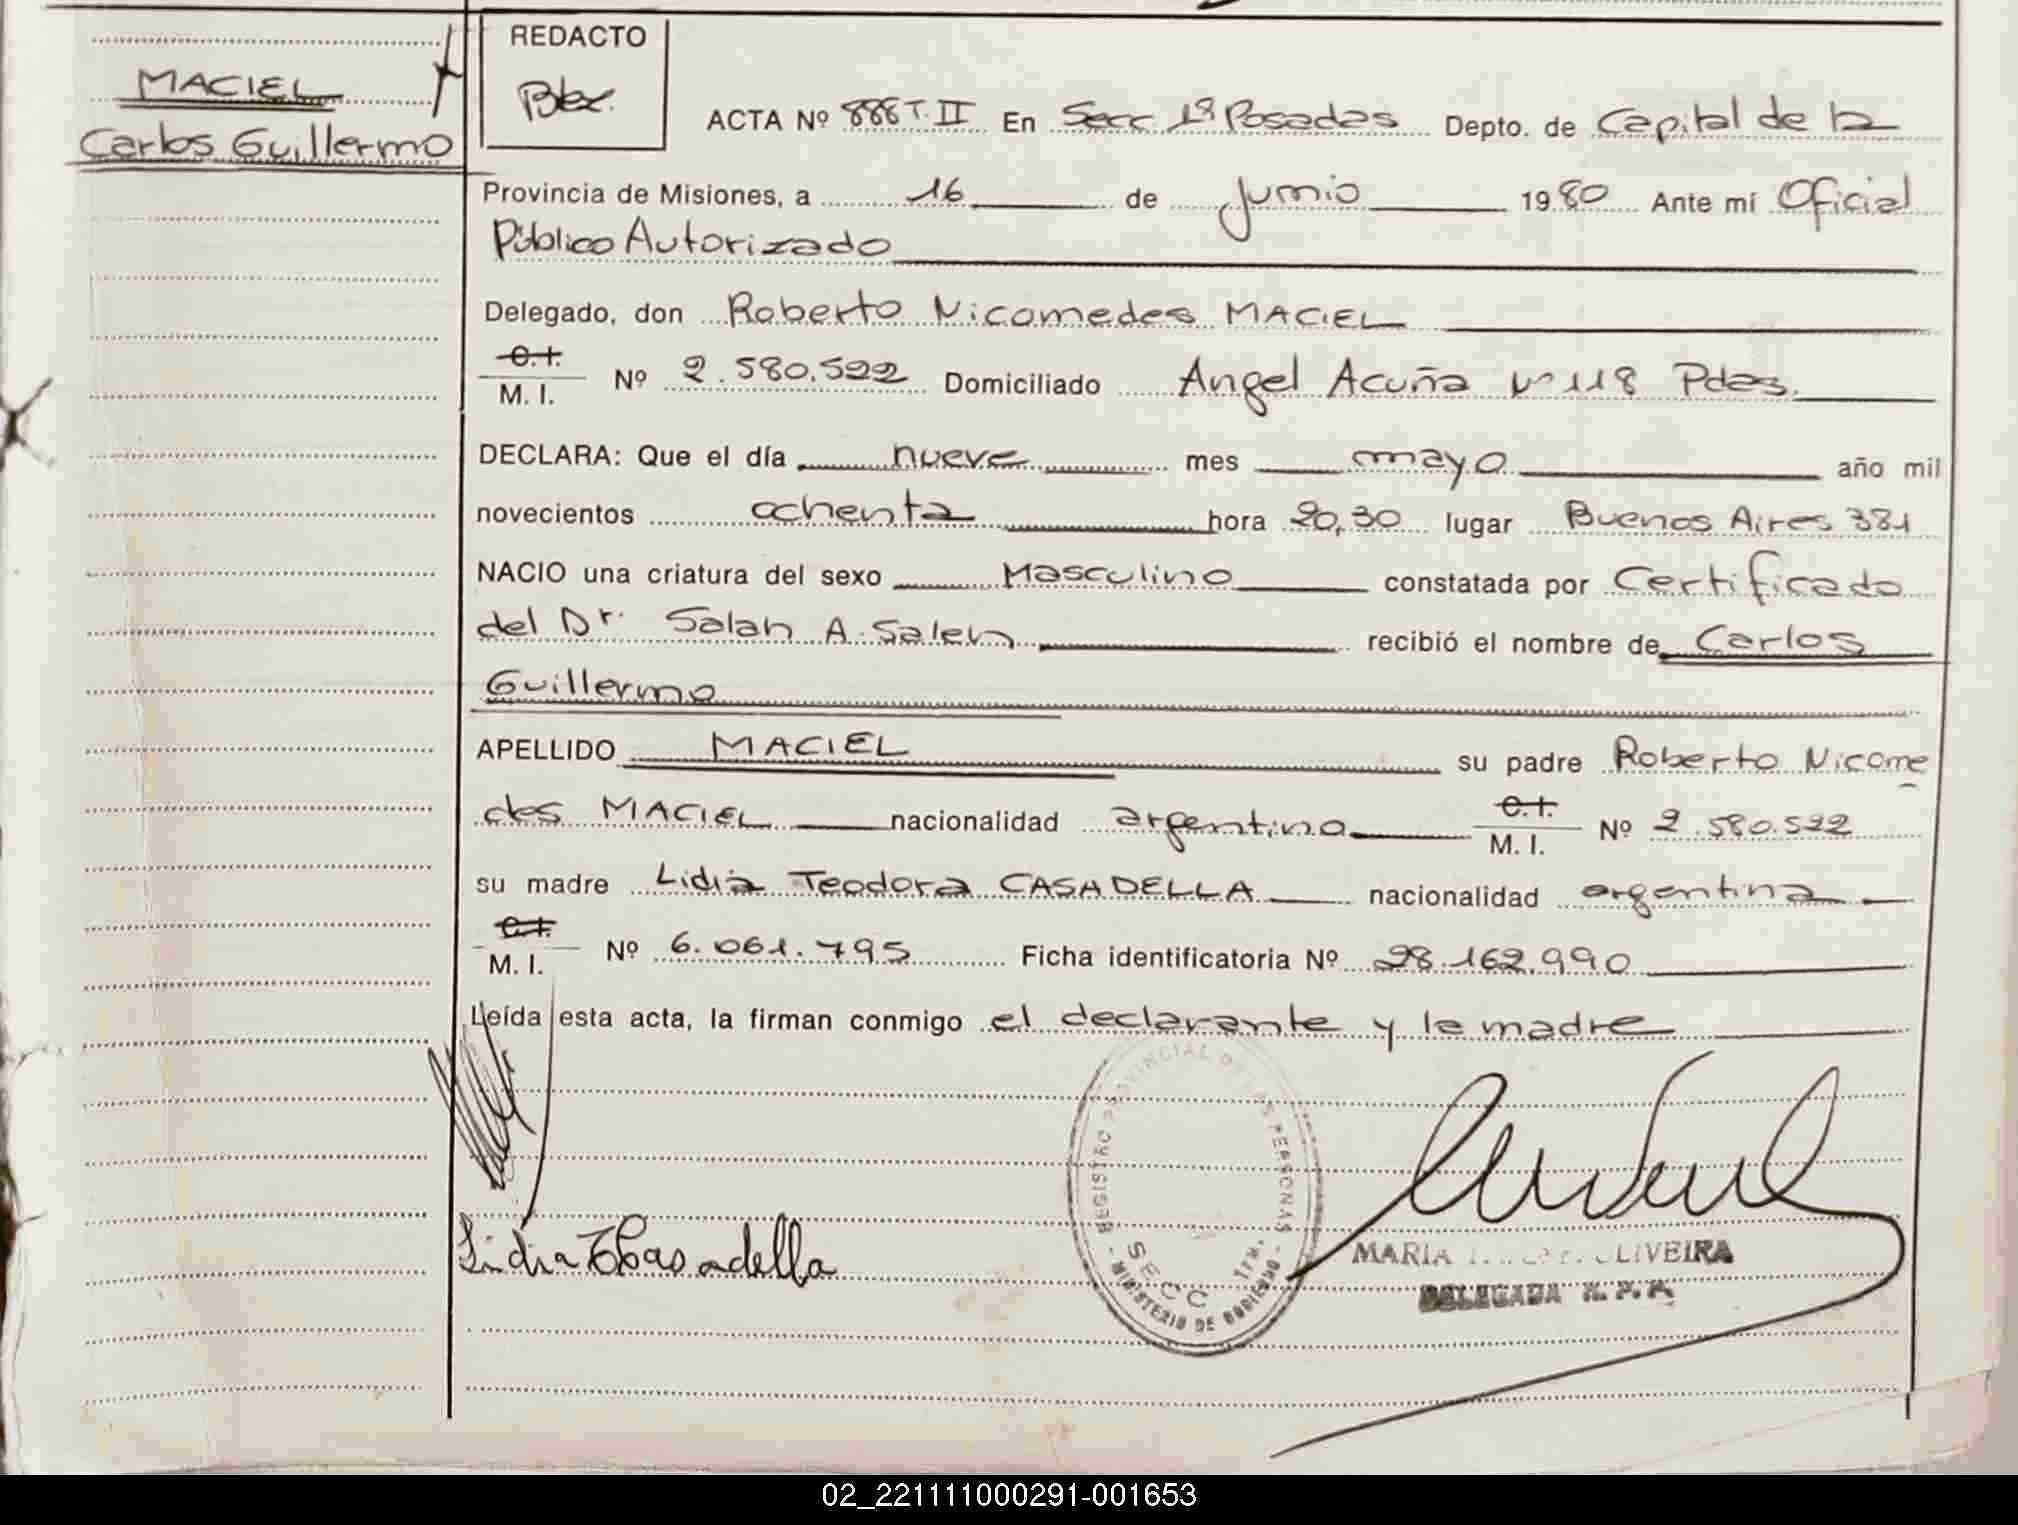 REDACTO
MACIEL
Carlos Guillermo
ACTA Nº 888 T. II En Secc 1ª Posadas Depto. de Capital de la
Provincia de Misiones, a 16 de Junio 1980 Ante mí Oficial
Público Autorizado
Delegado, don Roberto Nicomedes MACIEL
C.I.
M. I. Nº 2.580.522 Domiciliado Angel Acuña Nº 118 Pdas.
DECLARA: Que el día nueve mes mayo año mil
novecientos ochenta hora 20,30 lugar Buenos Aires 381
NACIO una criatura del sexo Masculino constatada por Certificado
del Dr. Salah A. Saleh recibió el nombre de Carlos
Guillermo
APELLIDO MACIEL su padre Roberto Nicome
des MACIEL nacionalidad argentino C.I. M. I. Nº 2.580.522
su madre Lidia Teodora CASADELLA nacionalidad argentina
C.I.
M. I. Nº 6.061.795 Ficha identificatoria Nº 28.162.990
Leída esta acta, la firman conmigo el declarante y la madre
REGISTRO PROVINCIAL DE LAS PERSONAS
SECC 1ra.
- MINISTERIO DE GOBIERNO -
Lidia T Casadella
MARIA OLIVEIRA
DELEGADA R. P. P.
02_221111000291-001653